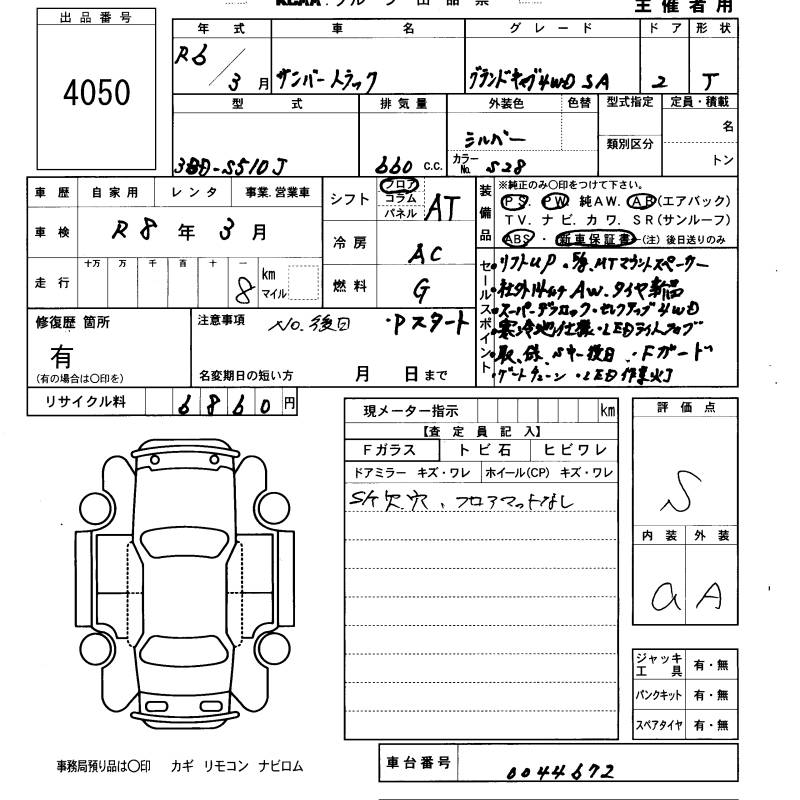 主催者用
出品番号
4050
年式 車名 グレード ドア 形状
R6/3月 サンバートラック グランドキャブ4WD SA 2 T
型式 排気量 外装色 色替 型式指定 定員・積載
類別区分 名
トン
3BD-S510J 660 c.c. シルバー カラーNo. S28
車歴 自家用 レンタ 事業.営業車
車検 R8年3月
走行 十万 万 千 百 十 一 8 km マイル
シフト フロア コラム パネル AT
冷房 AC
燃料 G
装備品
※純正のみ〇印をつけて下さい。
PS. PW 純AW. AB(エアバック)
TV. ナビ. カワ. SR(サンルーフ)
ABS・新車保証書(注)後日送りのみ
セールスポイント
・リフトUP
・社外14インチAW.タイヤ新品
・スーパーデフロック・セレクティブ4WD
・寒冷地仕様・LEDライトフォグ
・取.保.Sキー後日・Fガード
・ゲートチェーン・LED作業灯
修復歴 箇所
有
(有の場合は〇印を)
注意事項 NO.後日 ・Pスタート
名変期日の短い方 月 日まで
リサイクル料 6860円
現メーター指示 km
【査定員記入】
Fガラス トビ石 ヒビワレ
ドアミラー キズ・ワレ ホイール(CP) キズ・ワレ
S/K欠穴、フロアマットなし
評価点
S
内装 外装
a A
ジャッキ工具 有・無
パンクキット 有・無
スペアタイヤ 有・無
事務局預り品は〇印 カギ リモコン ナビロム
車台番号 0044672